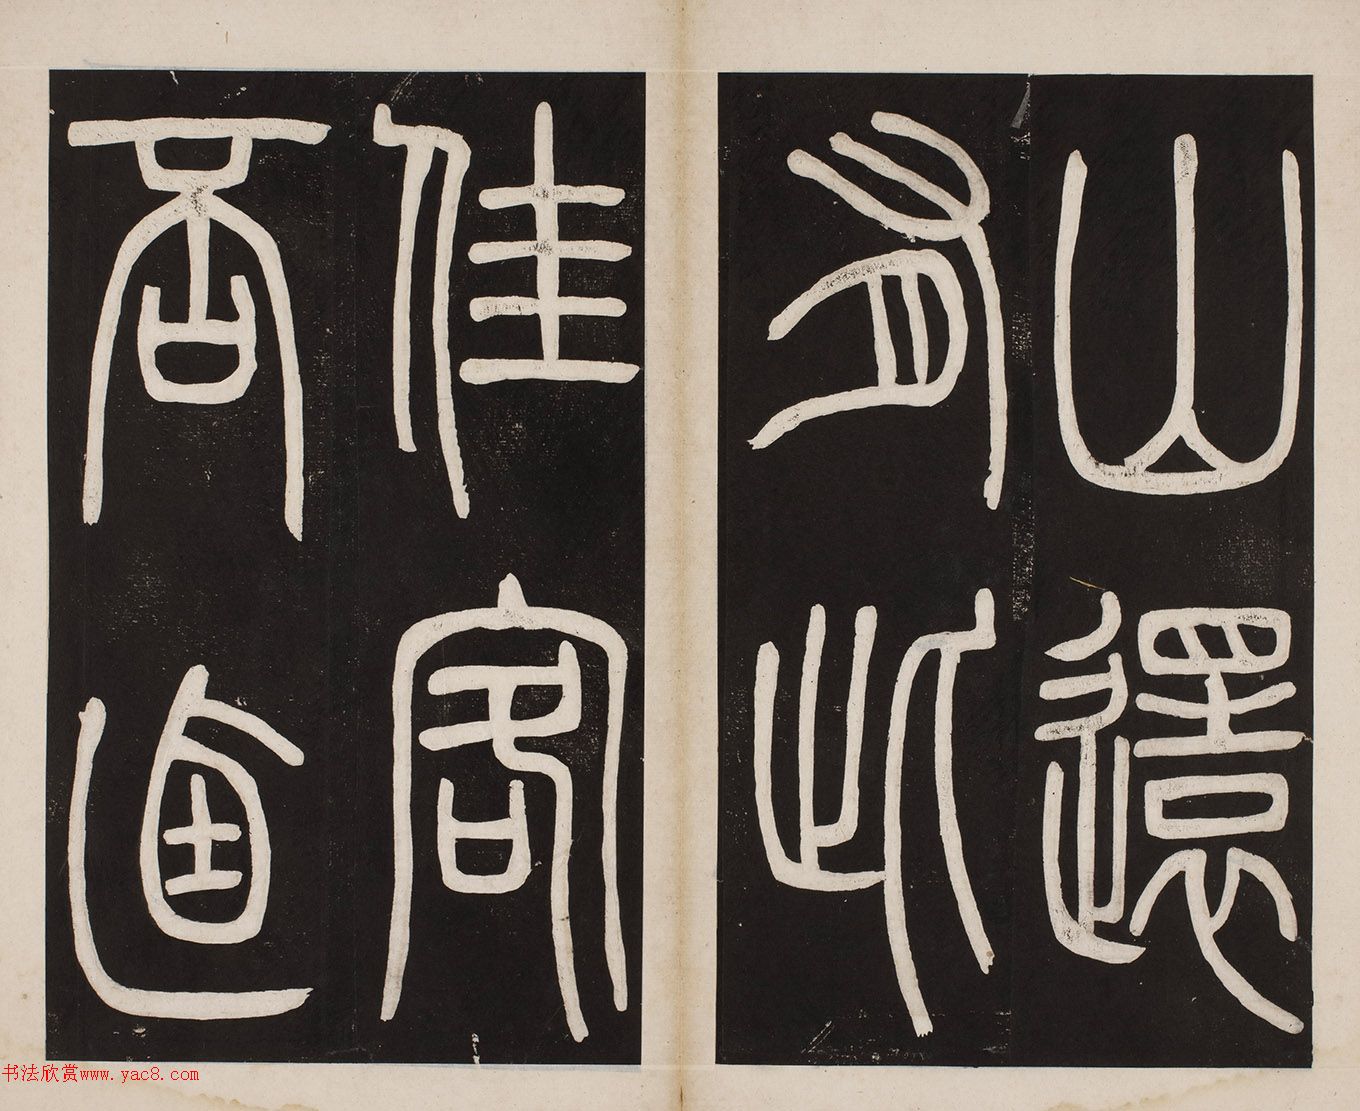 山還
有此
佳客
商卣
书法欣赏www.yac8.com